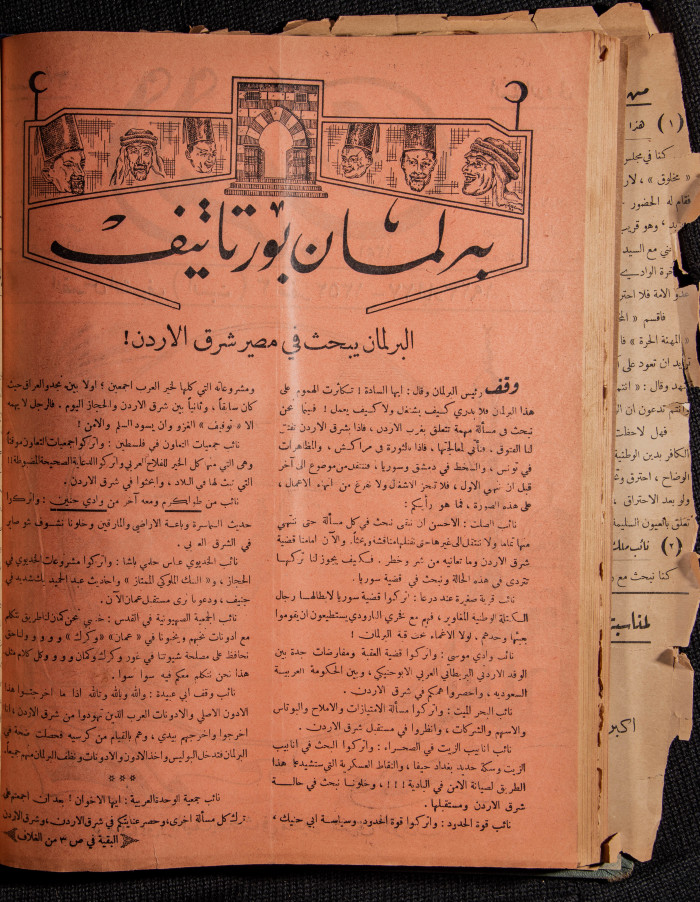 برلمان بورتاتيف
البرلمان يبحث في مصير شرق الاردن!
وقف رئيس البرلمان وقال : ايها السادة ! تكاثرت الهموم على
هذا البرلمان فلا يدري كيف يشتغل ولا كيف يعمل ! فبينما نحن
نبحث في مسألة مهمة تتعلق بغرب الاردن ، فاذا بشرق الاردن تفتق
لنا الفتوق . فنأتي لمعالجتها ، فاذا بالثورة في مراكش ، والمظاهرات
في تونس ، والسخط في دمشق وسوريا ، فننتقل من موضوع الى آخر
قبل ان ننهي الاول ، فلا تنجز الاشغال ولا نفرغ من الاعمال ،
على هذه الصورة ، فما هو رأيكم :
نائب الصلت : الاحسن ان نبقى نبحث في كل مسألة حتى ننتهي
منها تماما ولا ننتقل الى غيرها حتى نقتلها مناقشة وبحثاً . والآن امامنا قضية
شرق الاردن وما تعانيه من شر وخطر . فكيف يجوز لنا تركها
تتردى في هذه الحالة ونبحث في قضية سوريا .
نائب قرية صغيرة عند درعا : اتركوا قضية سوريا لابطالها رجال
الكتلة الوطنية المغاوير ، فهم مع فخري البارودي يستطيعون ان يقوموا
بعبئها وحدهم . لولا الاغماء لخنقة البرلمان !
نائب وادي موسى : واتركوا قضية العقبة ومفاوضات جدة بين
الوفد الاردني البريطاني العربي الابوحنيكي ، وبين الحكومة العربية
السعودية ، واحصروا همكم في شرق الاردن .
نائب البحر الميت : واتركوا مسألة الامتيازات والاملاح والبوتاس
والاسهم والشركات ، وانظروا في مستقبل شرق الاردن .
نائب انابيب الزيت في الصحراء : واتركوا البحث في انابيب
الزيت وسكة حديد بغداد حيفا ، والنقاط العسكرية التي ستشيد على هذا
الطريق لصيانة الامن في البادية !!! ، وخلونا نبحث في حالة
شرق الاردن ومستقبلها .
نائب قوة الحدود : واتركوا قوة الحدود، وسياسة ابي حنيك ،
ومشروعاته التي كلها لخير العرب اجمعين ؛ اولا بين نجد والعراق حيث
كان سابقاً ، وثانياً بين شرق الاردن والحجاز اليوم . فالرجل لا يهمه
الا « توقيف » الغزو وان يسود السلم والامن !
نائب جمعيات التعاون في فلسطين : واتركوا جمعيات التعاون موقتاً
وهي التي منها كل الخير للفلاح العربي واتركوا الدعاية الصحيحة المضبوطة!!
التي تبث لها في البلاد ، وابحثوا في شرق الاردن .
نائب من طولكرم ومعه آخر من وادي حنين : واتركوا
حديث السماسرة وباعة الاراضي والمارقين وخلونا نشوف شو صاير
في الشرق العربي .
نائب الخديوي عباس حلمي باشا : واتركوا مشروعات الخديوي في
الحجاز ، و « البنك الملوكي الممتاز » واحاديث عبد الحميد بك شديد في
جنيف ، ودعونا نرى مستقبل عمان الآن .
نائب الجمعية الصهيونية في القدس : خبيبي نحن كمان لناطريق نتكلم
مع ادونات نخبهم ويخبونا في « عمان » « وكرك » و و و و ولناحق
نحافظ على مصلحة شبوتنا في غور وكرك وكمان و و و وكل كلام مثل
هذا نحن نتكلم معكم فيه سوا سوا .
نائب وقف ابي عبيدة : والله وبالله وتالله اذا ما اخرجتموا هذا
الادون الاصلي والادونات العرب الذين تهودوا من شرق الاردن ، لانا
اخرجوا واخرجهم بيدي ، وهم بالقيام من كرسيه فحصلت ضجة في
البرلمان فتدخل البوليس واخذ الادون والادونات ونظف البرلمان منهم جميعاً.
* * *
نائب جمعية الوحدة العربية : ايها الاخوان ! بعد ان اجمعتم على
ترك كل مسألة اخرى ، وحصر عنايتكم في شرق الاردن ، وشرق الاردن
البقية في ص ٣ من الغلاف
(١) هذا
كنا في مجلس
« مخلوق » ، لار
فقام له الحضور
وهو قريب
مع السيد
فاقسم « الخ
ان تعود على
وقال : « انتم
تدعون ان ال
فهل لاحظت
الكافر بدين الوطنية
الوضاح ، احترق
ولو بعد الاحتراق ،
تعلق بالعيون السليمة
(٢) نائب ملك
كنا نبحث مع
لمناسبة
اكبر